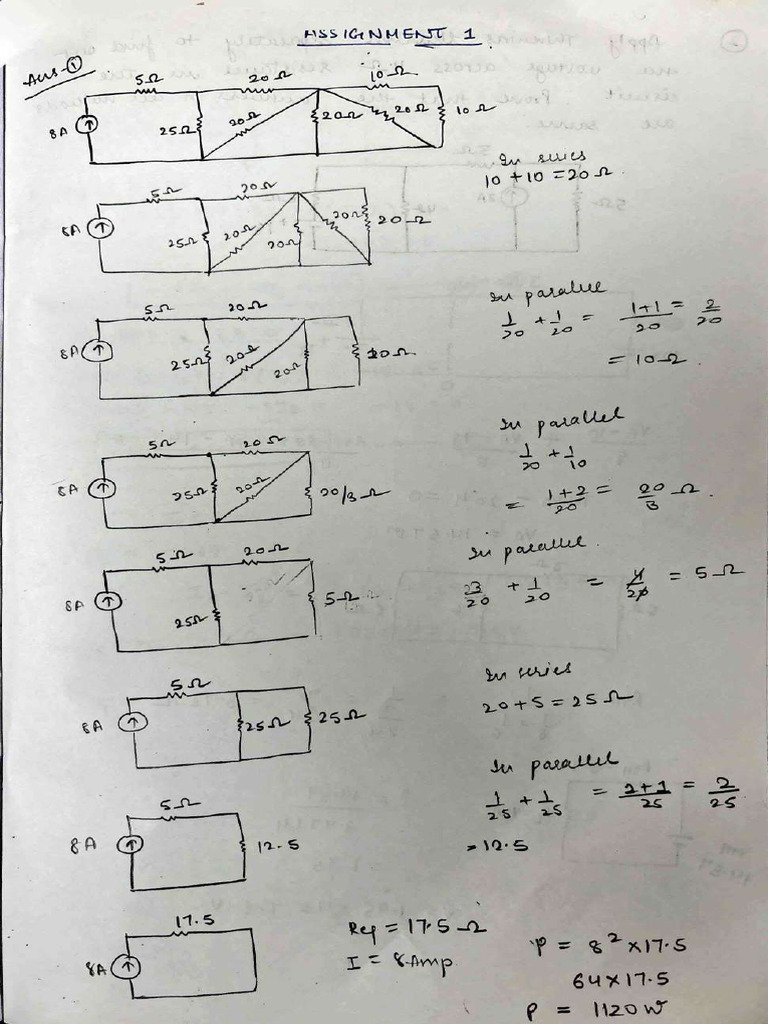 ASSIGNMENT 1
Ans-①
5Ω 20Ω 10Ω
8A 25Ω 20Ω 20Ω 20Ω 10Ω
In series
10 + 10 = 20 Ω
5Ω 20Ω
8A 25Ω 20Ω 20Ω 20Ω 20Ω
In parallel
1/20 + 1/20 = 1+1/20 = 2/20
= 10 Ω.
5Ω 20Ω
8A 25Ω 20Ω 20Ω 10Ω
In parallel
1/20 + 1/10
= 1+2/20 = 20/3 Ω.
5Ω 20Ω
8A 25Ω 20Ω 20/3 Ω
In parallel.
3/20 + 1/20 = 4/20 = 5Ω
5Ω 20Ω
8A 25Ω 5Ω
In series
20 + 5 = 25 Ω
5Ω
8A 25Ω 25Ω
In parallel
1/25 + 1/25 = 2+1/25 = 2/25
= 12.5
5Ω
8A 12.5
17.5
8A
Req = 17.5 Ω
I = 8 Amp.
P = 8² × 17.5
64 × 17.5
P = 1120 W